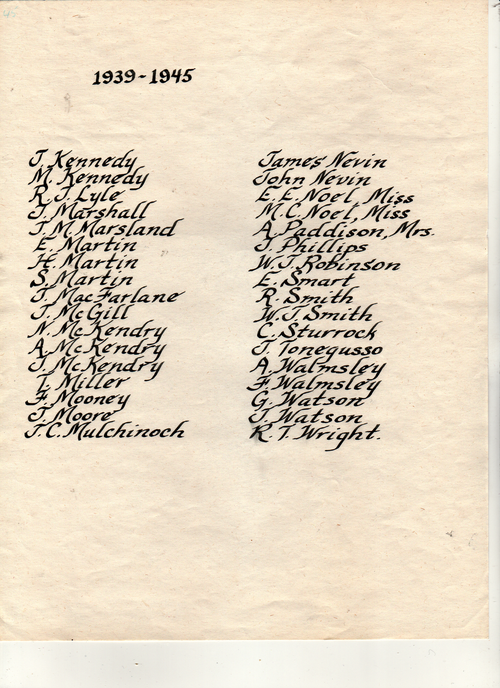 1939-1945
J. Kennedy
M. Kennedy
R. J. Lyle
J. Marshall
J. M. Marsland
E. Martin
H. Martin
S. Martin
J. MacFarlane
J. McGill
N. McKendry
A. McKendry
J. McKendry
L. Miller
F. Mooney
J. Moore
J. C. Mulchinoch
James Nevin
John Nevin
E. E. Noel, Miss
M. C. Noel, Miss
A. Paddison, Mrs.
J. Phillips
W. J. Robinson
E. Smart
R. Smith
W. J. Smith
C. Sturrock
J. Tonegusso
A. Walmsley
F. Walmsley
G. Watson
J. Watson
R. T. Wright.